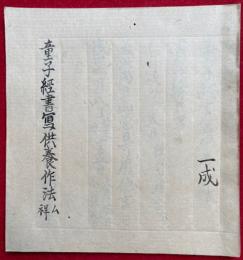 童子経書寫供養作法ム祥
一成